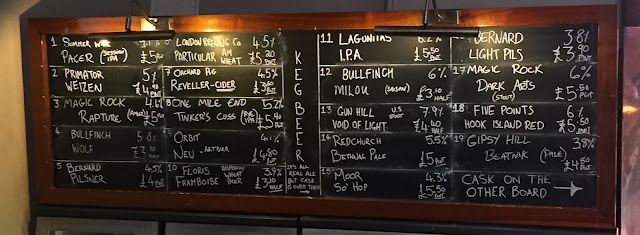 1 SUMMER WINE
PACER (SESSION IPA)
2 PRIMATOR 5%
WEIZEN £4 PINT
3 MAGIC ROCK 4.6%
RAPTURE
4 BULLFINCH 5.8%
WOLF HALF
5 BERNARD 4.5%
PILSNER £4 PINT
6 LONDON BREWING CO 4.5%
PARTICULAR AM WHEAT £5.20 PINT
7 ORCHARD PIG 4.5%
REVELLER-CIDER £3.80 PINT
8 ONE MILE END 5.2%
TINKER'S CUSS £5.40 PINT
ORBIT
NEU - ALTBIER £4.80 PINT
10 FLORIS RASPBERRY WHEAT BEER 3.9%
FRAMBOISE £3.10 HALF
KEG BEER
IT'S ALL
REAL ALE
BUT CASK
IS OVER THERE
11 LAGUNITAS 6.2%
I.P.A. £5.50 PINT
12 BULLFINCH 6%
MILOU (SAISON) £3.10 HALF
13 GUN HILL U.S STOUT 7.9%
VOID OF LIGHT £4.40 HALF
14 REDCHURCH 5.5%
BETHNAL PALE £5 PINT
15 MOOR 4.3%
SO' HOP £5.50 PINT
BERNARD 3.8%
LIGHT PILS £3.90 PINT
17 MAGIC ROCK 6%
DARK ARTS (STOUT) £5.50 PINT
18 FIVE POINTS 6%
HOOK ISLAND RED £5.50 PINT
19 GIPSY HILL 3.8%
BEATNIK (PALE) £4.80 PINT
CASK ON THE
OTHER BOARD →